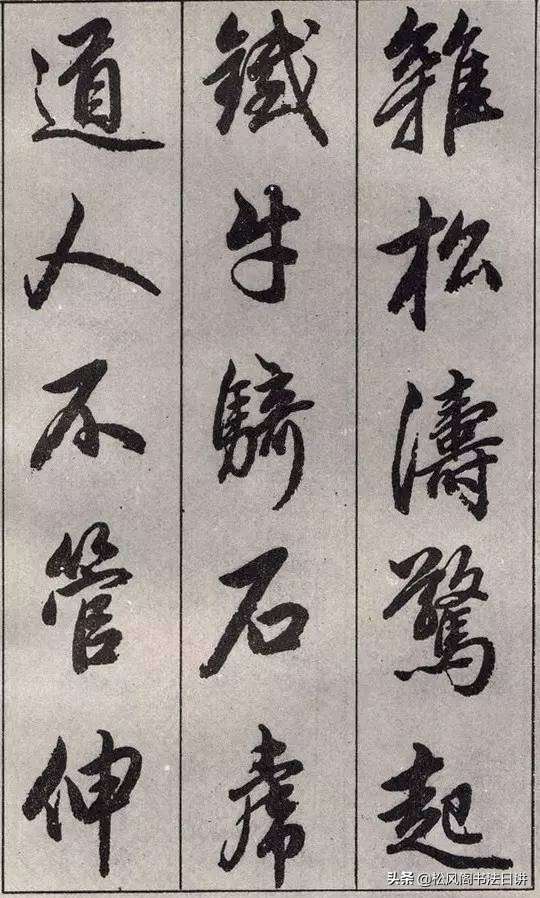 雜松濤驚起
鐵牛騎石虎
道人不管伸
头条 @松风阁书法日讲